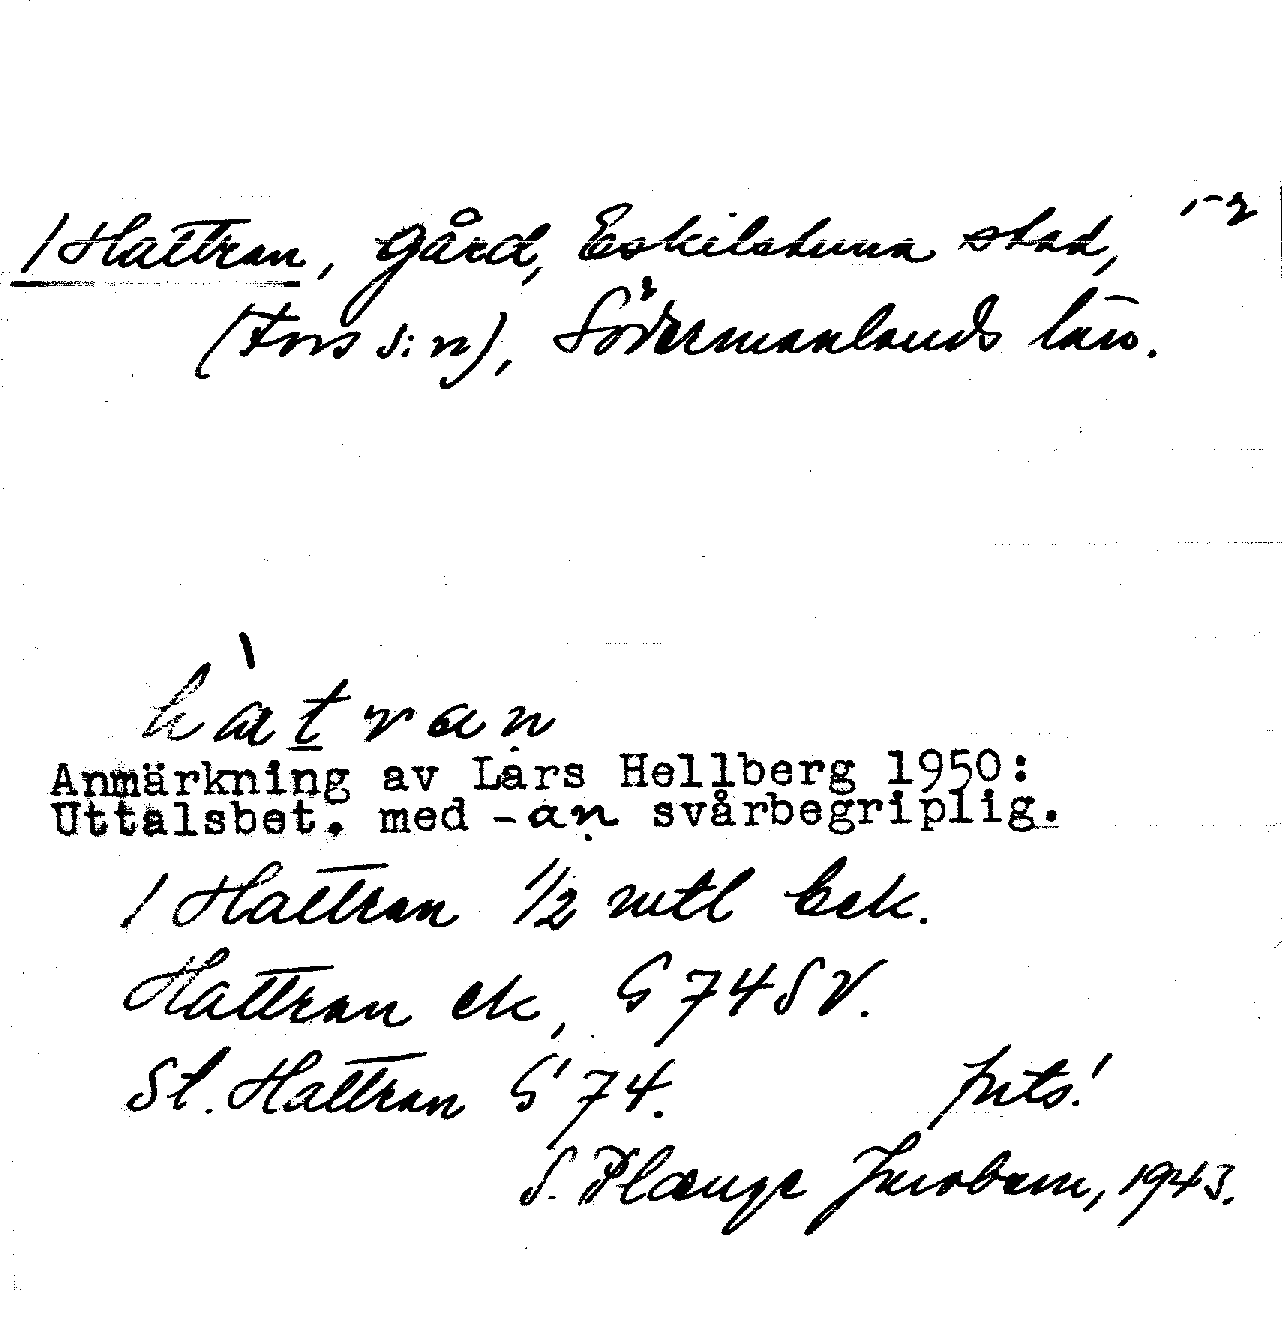 / Hattran, gård, Eskilstuna stad,
(Fors s:n), Södermanlands län.
hàtran
Anmärkning av Lars Hellberg 1950:
Uttalsbet. med -aṇ svårbegriplig.
/ Hattran 1/2 mtl Eek.
Hattran ek, G 74 SV.
St. Hattran G 74. prts!
S. Plænge Jacobson, 1943.